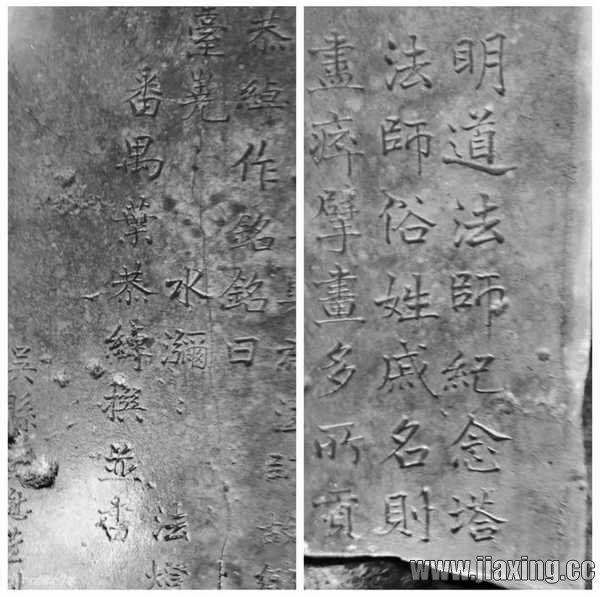 明道法師紀念塔
法師俗姓戚名則
盡瘁擘畫多所貢
恭綽作銘銘曰
臺嶤〻水瀰〻法燈
番禺葉恭綽撰並書
吳縣
www.jiaxing.cc